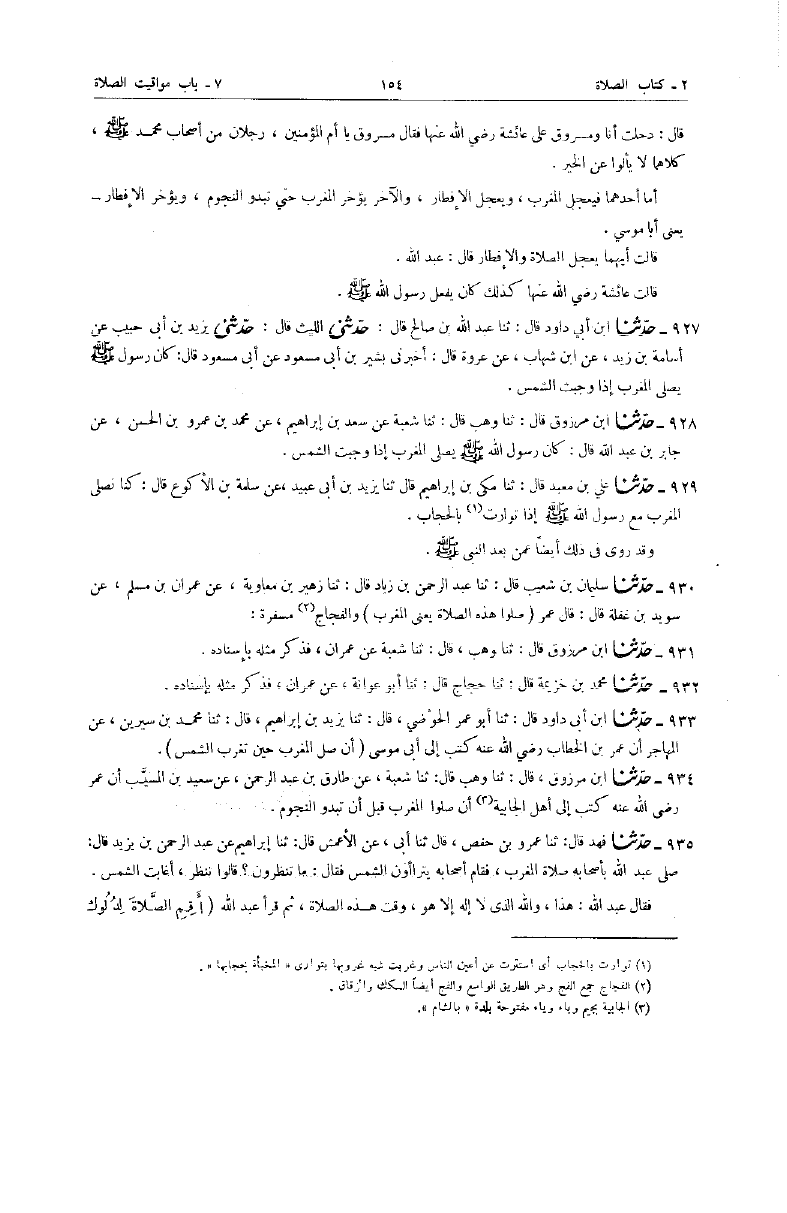 ٢ - كتاب الصلاة ١٥٤ ٧ - باب مواقيت الصلاة
قال : دخلت أنا ومسروق على عائشة رضي الله عنها فقال مسروق يا أم المؤمنين ، رجلان من أصحاب محمد ﷺ ،
كلاهما لا يألوا عن الخير .
أما أحدهما فيعجل المغرب ، ويعجل الإفطار ، والآخر يؤخر المغرب حتى تبدو النجوم ، ويؤخر الإفطار –
يعنى أبا موسي .
قالت أيهما يعجل الصلاة والإفطار قال : عبد الله .
قالت عائشة رضي الله عنها كذلك كان يفعل رسول الله ﷺ .
٩٢٧ - حدّثنا ابن أبي داود قال : ثنا عبد الله بن صالح قال : حدّثنى الليث قال : حدّثنى يزيد بن أبى حبيب عن
أسامة بن زيد ، عن ابن شهاب ، عن عروة قال : أخبرنى بشير بن أبى مسعود عن أبى مسعود قال: كان رسول ﷺ
يصلى المغرب إذا وجبت الشمس .
٩٢٨ - حدّثنا ابن مرزوق قال : ثنا وهب قال : ثنا شعبة عن سعد بن إبراهيم ، عن محمد بن عمرو بن الحسن ، عن
جابر بن عبد الله قال : كان رسول الله ﷺ يصلى المغرب إذا وجبت الشمس .
٩٢٩ - حدّثنا علي بن معبد قال : ثنا مكى بن إبراهيم قال ثنا يزيد بن أبى عبيد ،عن سلمة بن الأكوع قال : كنا نصلى
المغرب مع رسول الله ﷺ إذا توارت(١) بالحجاب .
وقد روى فى ذلك أيضاً عمن بعد النبى ﷺ .
٩٣٠ - حدّثنا سليمان بن شعيب قال : ثنا عبد الرحمن بن زياد قال : ثنا زهير بن معاوية ، عن عمران بن مسلم ، عن
سويد بن غفلة قال : قال عمر ( صلوا هذه الصلاة يعنى المغرب ) والفجاج(٢) مسفرة :
٩٣١ - حدّثنا ابن مرزوق قال : ثنا وهب ، قال : ثنا شعبة عن عمران ، فذكر مثله بإسناده .
٩٣٢ - حدّثنا محمد بن خزيمة قال : ثنا حجاج قال : ثنا أبو عوانة ، عن عمران ، فذكر مثله بإسناده .
٩٣٣ - حدّثنا ابن أبى داود قال : ثنا أبو عمر الحوضي ، قال : ثنا يزيد بن إبراهيم ، قال : ثنا محمد بن سيرين ، عن
المهاجر أن عمر بن الخطاب رضي الله عنه كتب إلى أبى موسى ( أن صل المغرب حين تغرب الشمس ) .
٩٣٤ - حدّثنا ابن مرزوق ، قال : ثنا وهب قال: ثنا شعبة ، عن طارق بن عبد الرحمن ، عن سعيد بن المسيَّب أن عمر
رضي الله عنه كتب إلى أهل الجابية(٣) أن صلوا المغرب قبل أن تبدو النجوم .
٩٣٥ - حدّثنا فهد قال: ثنا عمرو بن حفص ، قال ثنا أبى ، عن الأعمش قال: ثنا إبراهيم عن عبد الرحمن بن يزيد قال:
صلى عبد الله بأصحابه صلاة المغرب ، فقام أصحابه يتراأون الشمس فقال : ما تنظرون ؟ قالوا ننظر ، أغابت الشمس .
فقال عبد الله : هذا ، والله الذى لا إله إلا هو ، وقت هذه الصلاة ، ثم قرأ عبد الله ( أَقِمِ الصَّلَاةَ لِدُلُوكِ
(١) توارت بالحجاب أى استترت عن أعين الناس وغربت شبه غروبها بتوارى « المخبأة بحجابها » .
(٢) الفجاج جمع الفج وهو الطريق الواسع والفج أيضاً السكك والزقاق .
(٣) الجابية بجيم وباء وياء مفتوحة بلدة « بالشام ».